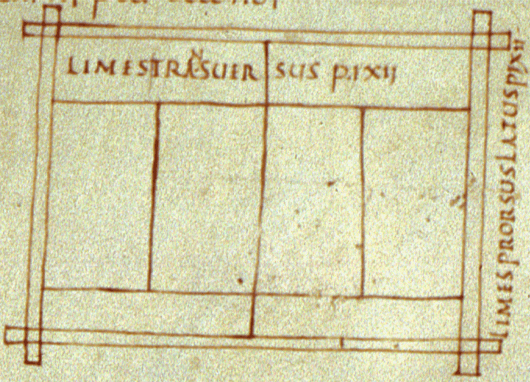 LIMESTRASUER SUS P.LXII
LIMES PRORSUS LATUS P.LXII